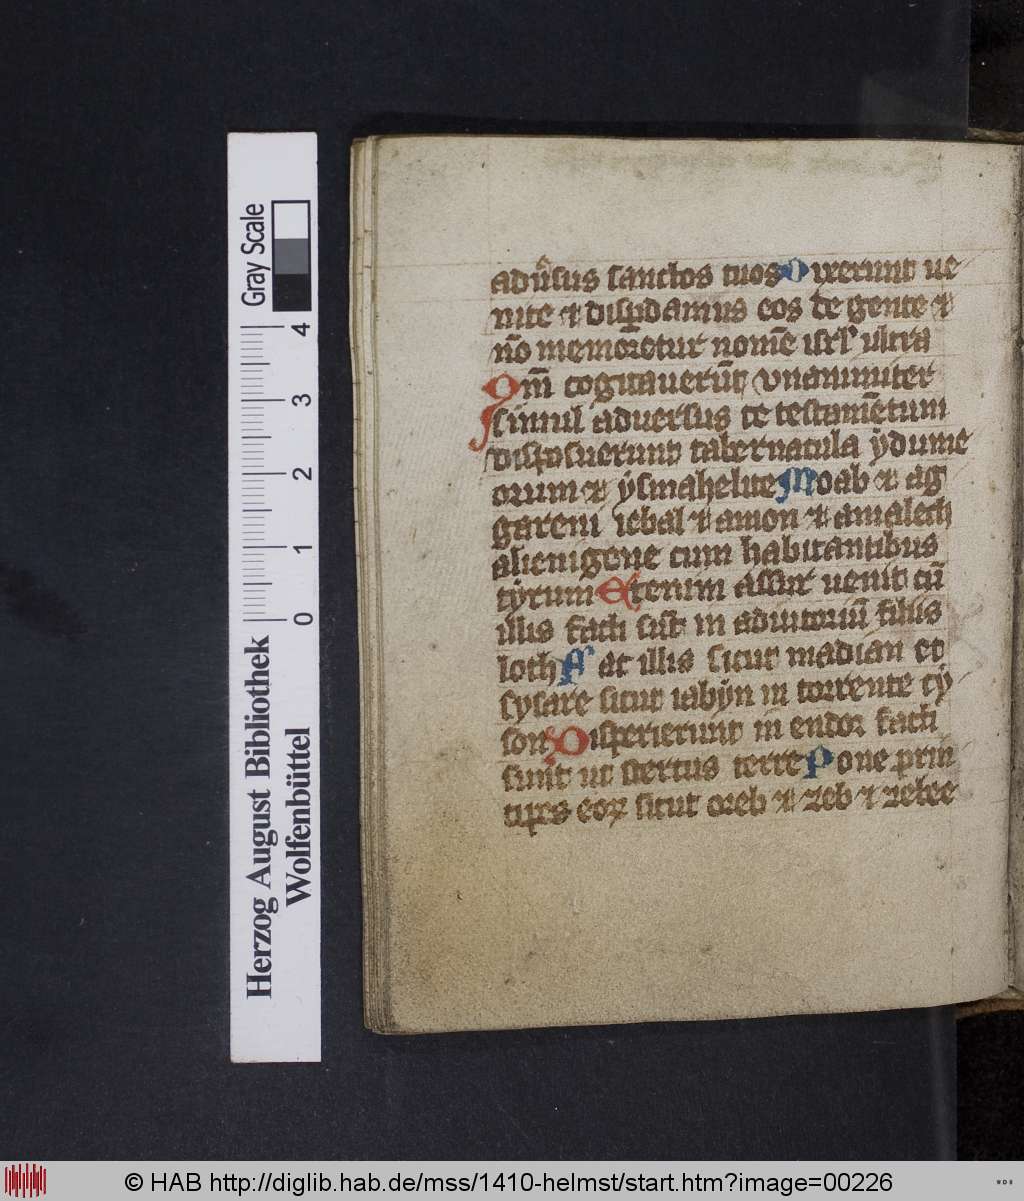 adūsus sanctos tuos Dixerunt ue
nite et disperdamus eos de gente et
nō memoretur nomē isrl ultra
Qm̄ cogitauerūt vnanimiter
simul aduersus te testamētum
disposuerunt tabernacula ydume
orum et ysmahelite Moab et ag
gareni iebal et amon et amalech
alienigene cum habitantibus
tyrum Etenim assur uenit cū
illis facti sūt in adiutoriū filiis
loth Fac illis sicut madian et
sysare sicut iabyn in torrente cy
son Disperierunt in endor facti
sunt ut stercus terre Pone prin
cipes eoꝝ sicut oreb et zeb et zebee
Gray Scale
4
3
2
1
0
Herzog August Bibliothek
Wolfenbüttel
© HAB http://diglib.hab.de/mss/1410-helmst/start.htm?image=00226